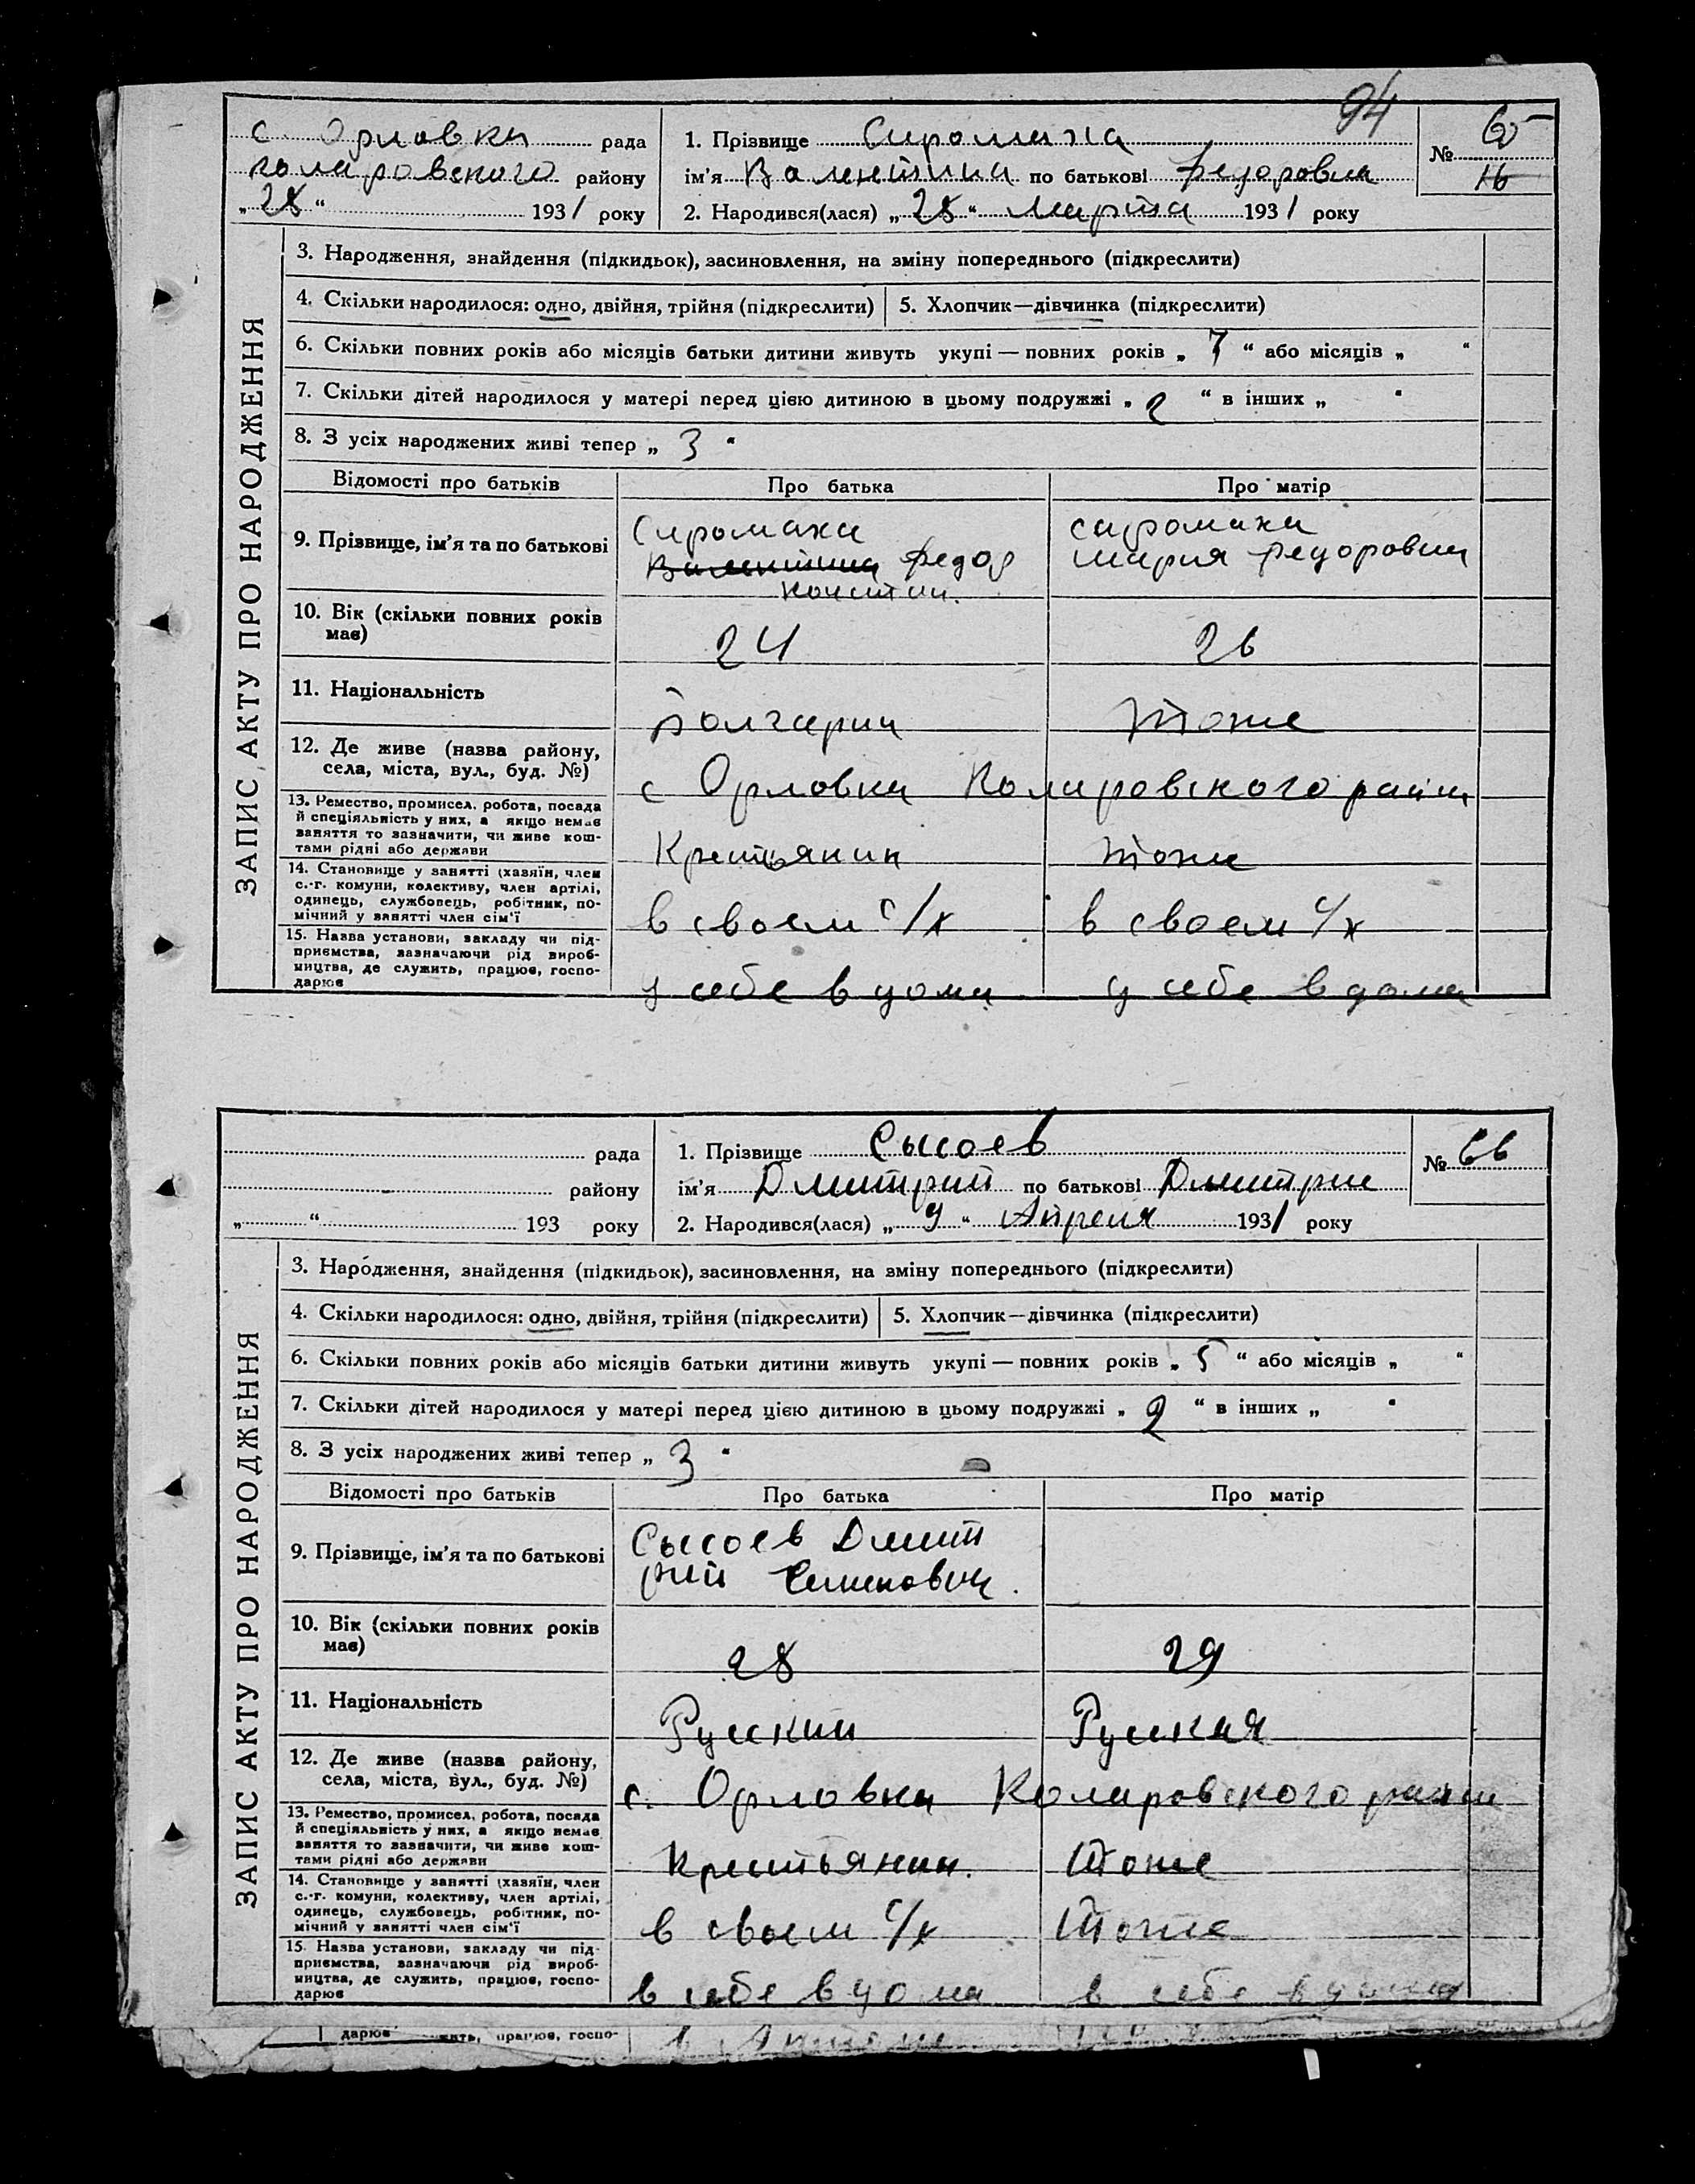 94
с Орловки рада
коларовского району
„ 28 “ 1931 року
1. Прізвище Сиромаха
ім'я Валентина по батькові федоровна
2. Народився(лася) „ 28 “ Марта 1931 року
№ 65
16
ЗАПИС АКТУ ПРО НАРОДЖЕННЯ
3. Народження, знайдення (підкидьок), засиновлення, на зміну попереднього (підкреслити)
4. Скільки народилося: одно, двійня, трійня (підкреслити) 5. Хлопчик—дівчинка (підкреслити)
6. Скільки повних років або місяців батьки дитини живуть укупі — повних років „ 7 “ або місяців „ “
7. Скільки дітей народилося у матері перед цією дитиною в цьому подружжі „ 2 “ в інших „ “
8. З усіх народжених живі тепер „ 3 “
Відомості про батьків Про батька Про матір
9. Прізвище, ім'я та по батькові
Сиромаха
Валентина федор
констан.
сиромаха
мария федоровна
10. Вік (скільки повних років
має)
24 26
11. Національність
болгарин тоже
12. Де живе (назва району,
села, міста, вул., буд. №)
с Орловка Коларовского
13. Ремество, промисел, робота, посада
й спеціяльність у них, а якщо немає
заняття то зазначити, чи живе кош-
тами рідні або держави
Крестьянин тоже
14. Становище у занятті (хазяїн, член
с.-г. комуни, колективу, член артілі,
одинець, службовець, робітник, по-
мічний у занятті член сім'ї
в своем с/х в своем с/х
15. Назва установи, закладу чи під-
приємства, зазначаючи рід вироб-
ництва, де служить, працює, госпо-
дарює
у себе в дома у себе в дома
рада
району
„ “ 193 року
1. Прізвище Сысоев
ім'я Дмитрий по батькові Дмитрие
2. Народився(лася) „ 9 “ Апреля 1931 року
№ 66
ЗАПИС АКТУ ПРО НАРОДЖЕННЯ
3. Народження, знайдення (підкидьок), засиновлення, на зміну попереднього (підкреслити)
4. Скільки народилося: одно, двійня, трійня (підкреслити) 5. Хлопчик—дівчинка (підкреслити)
6. Скільки повних років або місяців батьки дитини живуть укупі — повних років „ 5 “ або місяців „ “
7. Скільки дітей народилося у матері перед цією дитиною в цьому подружжі „ 2 “ в інших „ “
8. З усіх народжених живі тепер „ 3 “
Відомості про батьків Про батька Про матір
9. Прізвище, ім'я та по батькові
Сысоев Дмит
рий
10. Вік (скільки повних років
має)
28 29
11. Національність
Русский Русская
12. Де живе (назва району,
села, міста, вул., буд. №)
с. Орловка Коларовского
13. Ремество, промисел, робота, посада
й спеціяльність у них, а якщо немає
заняття то зазначити, чи живе кош-
тами рідні або держави
Крестьянин. Тоже
14. Становище у занятті (хазяїн, член
с.-г. комуни, колективу, член артілі,
одинець, службовець, робітник, по-
мічний у занятті член сім'ї
в своем с/х Тоже
15. Назва установи, закладу чи під-
приємства, зазначаючи рід вироб-
ництва, де служить, працює, госпо-
дарює
в себе в дома в себе в дома
дарює жить, працює, госпо-